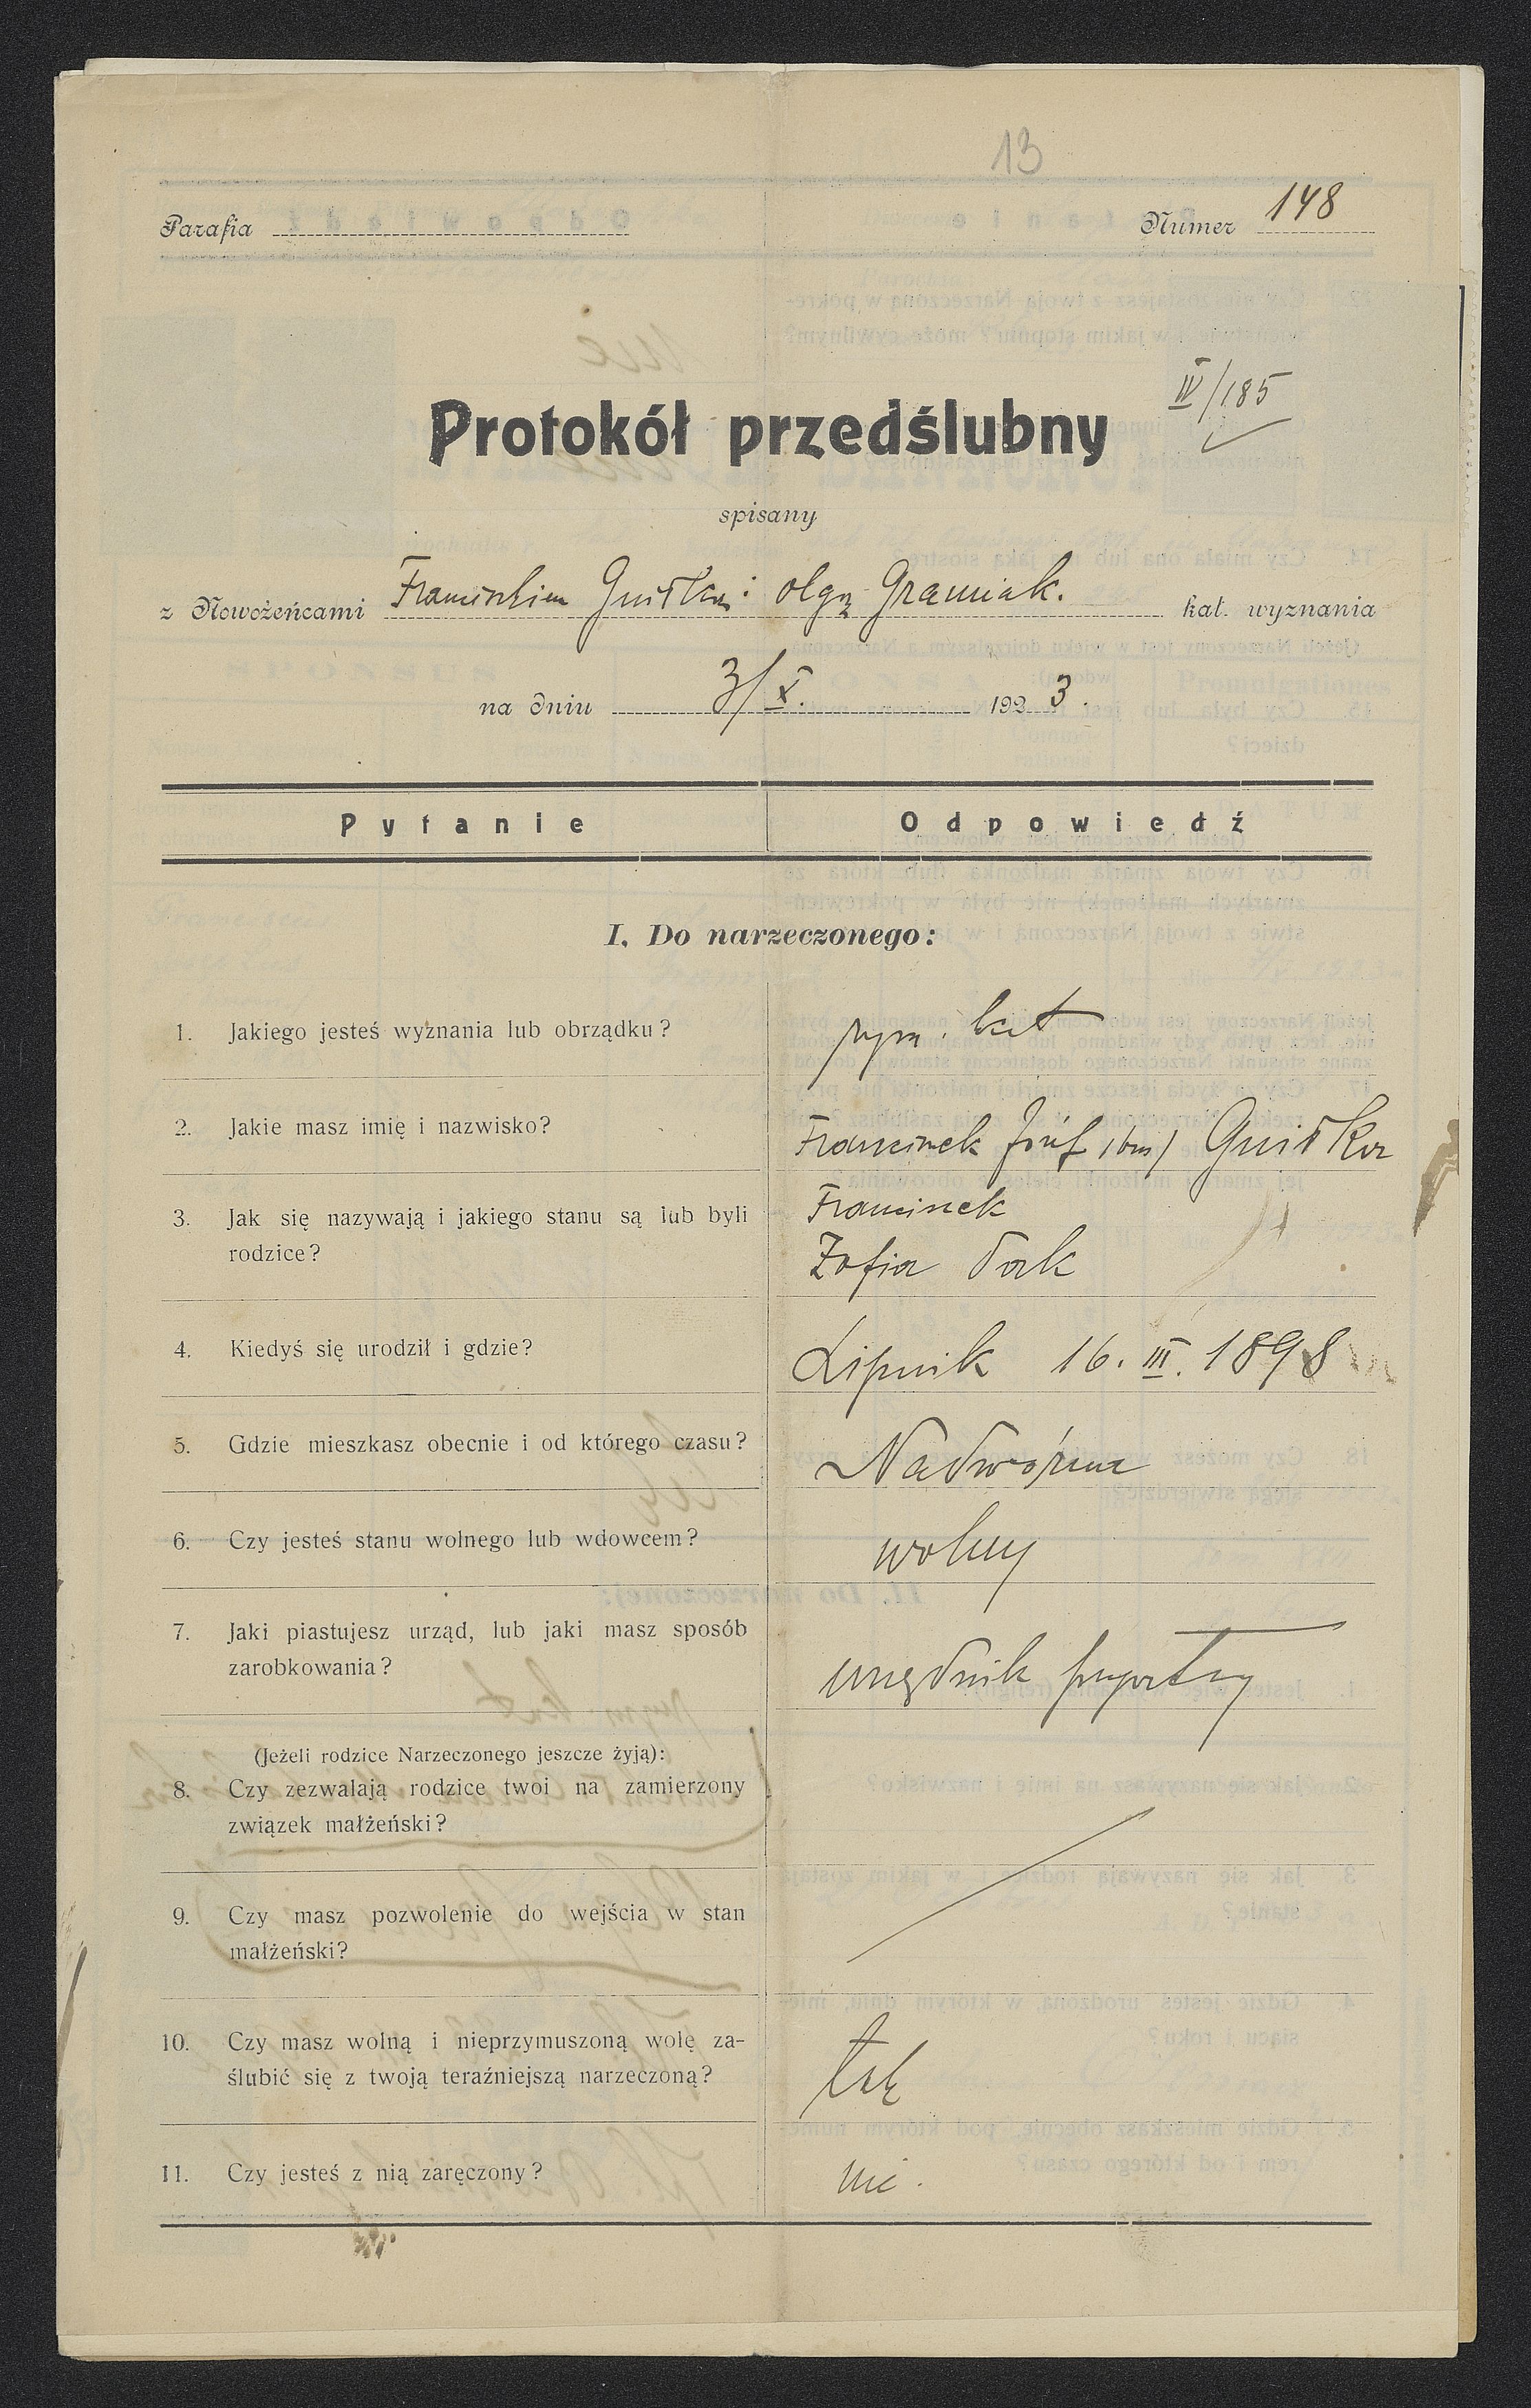 13
Parafia Numer 148
IV/185
Protokół przedślubny
spisany
z Nowożeńcami Franciszkiem i Olgą Gramiak. kat. wyznania
na dniu 3/X. 1923.
Pytanie Odpowiedź
I. Do narzeczonego:
1. Jakiego jesteś wyznania lub obrządku? rzym. kat
2. Jakie masz imię i nazwisko? Franciszek Józef
3. Jak się nazywają i jakiego stanu są lub byli Franciszek
rodzice? Zofia
4. Kiedyś się urodził i gdzie? Lipnik 16. III. 1898
5. Gdzie mieszkasz obecnie i od którego czasu? Nadwórna
6. Czy jesteś stanu wolnego lub wdowcem? wolny
7. Jaki piastujesz urząd, lub jaki masz sposób
zarobkowania? urzędnik
(Jeżeli rodzice Narzeczonego jeszcze żyją):
8. Czy zezwalają rodzice twoi na zamierzony
związek małżeński?
9. Czy masz pozwolenie do wejścia w stan
małżeński?
10. Czy masz wolną i nieprzymuszoną wolę za-
ślubić się z twoją teraźniejszą narzeczoną? tak
11. Czy jesteś z nią zaręczony? nie.